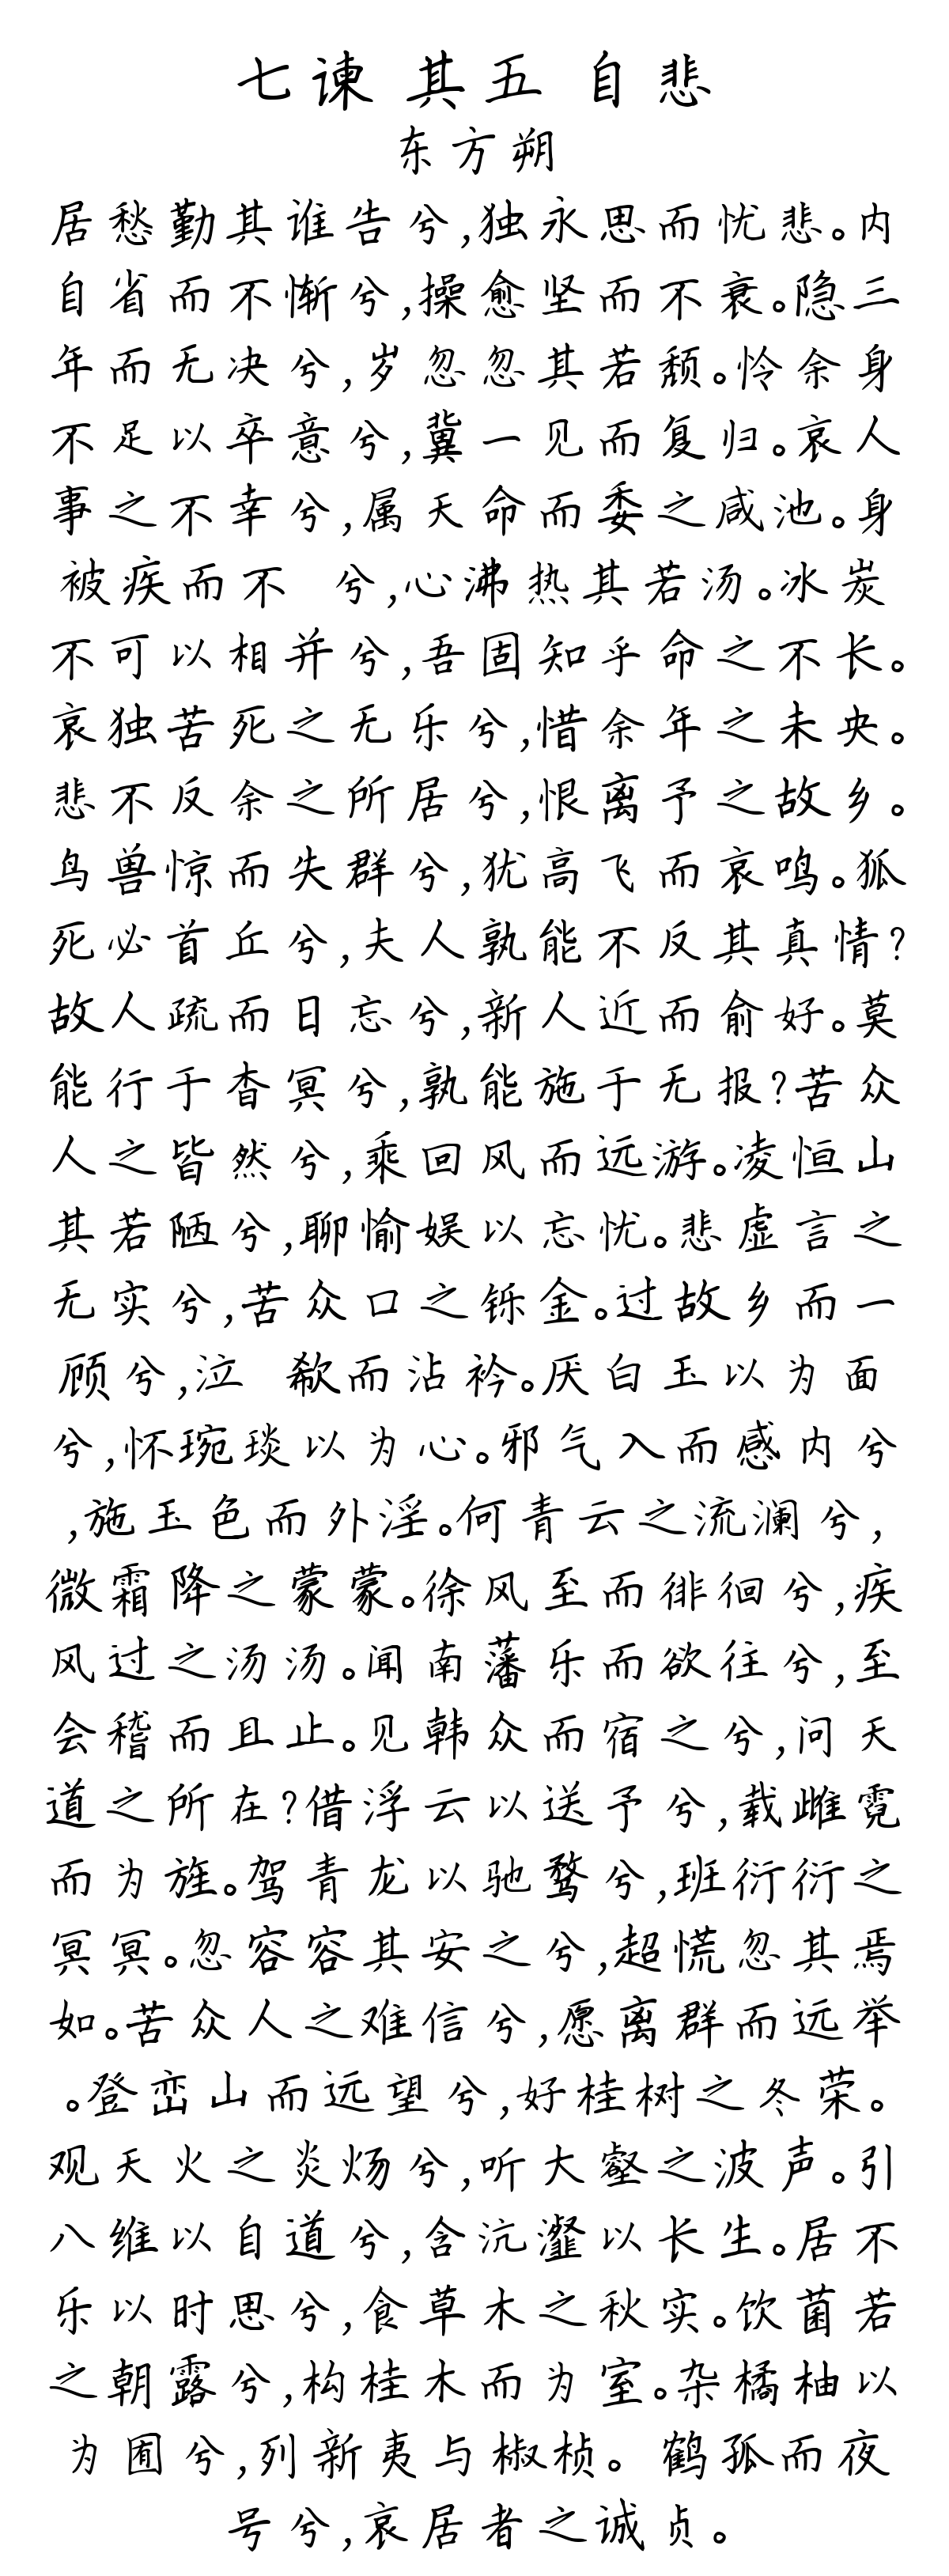 七谏 其五 自悲
东方朔
居愁勤其谁告兮,独永思而忧悲。内
自省而不惭兮,操愈坚而不衰。隐三
年而无决兮,岁忽忽其若颓。怜余身
不足以卒意兮,冀一见而复归。哀人
事之不幸兮,属天命而委之咸池。身
被疾而不 兮,心沸热其若汤。冰炭
不可以相并兮,吾固知乎命之不长。
哀独苦死之无乐兮,惜余年之未央。
悲不反余之所居兮,恨离予之故乡。
鸟兽惊而失群兮,犹高飞而哀鸣。狐
死必首丘兮,夫人孰能不反其真情?
故人疏而日忘兮,新人近而俞好。莫
能行于杳冥兮,孰能施于无报?苦众
人之皆然兮,乘回风而远游。凌恒山
其若陋兮,聊愉娱以忘忧。悲虚言之
无实兮,苦众口之铄金。过故乡而一
顾兮,泣 欷而沾衿。厌白玉以为面
兮,怀琬琰以为心。邪气入而感内兮
,施玉色而外淫。何青云之流澜兮,
微霜降之蒙蒙。徐风至而徘徊兮,疾
风过之汤汤。闻南藩乐而欲往兮,至
会稽而且止。见韩众而宿之兮,问天
道之所在?借浮云以送予兮,载雌霓
而为旌。驾青龙以驰骛兮,班衍衍之
冥冥。忽容容其安之兮,超慌忽其焉
如。苦众人之难信兮,愿离群而远举
。登峦山而远望兮,好桂树之冬荣。
观天火之炎炀兮,听大壑之波声。引
八维以自道兮,含沆瀣以长生。居不
乐以时思兮,食草木之秋实。饮菌若
之朝露兮,构桂木而为室。杂橘柚以
为囿兮,列新夷与椒桢。鹤孤而夜
号兮,哀居者之诚贞。